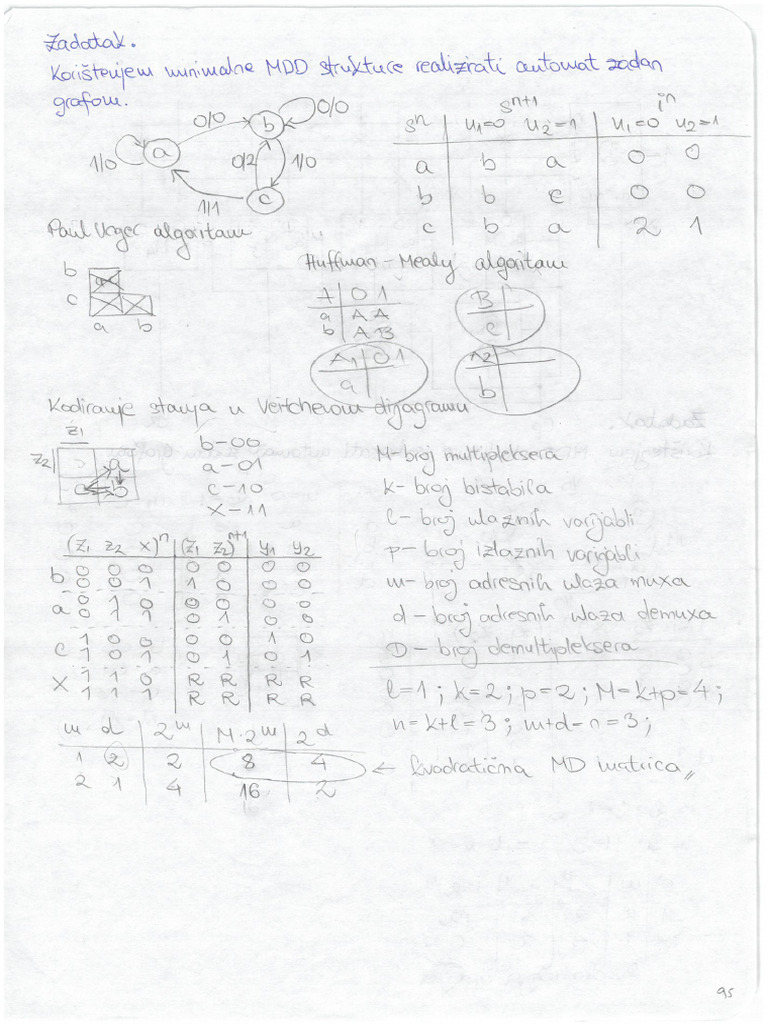 Zadatak.
Korištenjem minimalne MDD strukture realizirati automat zadan
grafom.
0/0 b 0/0
1/0 a 0/2 1/0
1/1 c
sⁿ⁺¹ iⁿ
sⁿ u₁=0 u₂=1 u₁=0 u₂=1
a b a 0 0
b b c 0 0
c b a 2 1
Paul Unger algoritam
b
c
a b
Huffman-Mealy algoritam
A 0 1
a A A
b A B
B
c
A₁ 0 1
a
A2
b
Kodiranje stanja u Veitchevom dijagramu
z₁
z₂ a
c b
b-00
a-01
c-10
x-11
M-broj multipleksera
k-broj bistabila
l-broj ulaznih varijabli
p-broj izlaznih varijabli
m-broj adresnih ulaza muxa
d-broj adresnih ulaza demuxa
D-broj demultipleksera
(z₁ z₂ x)ⁿ (z₁ z₂)ⁿ⁺¹ y₁ y₂
b 0 0 0 0 0 0 0
0 0 1 1 0 0 0
a 0 1 0 0 0 0 0
0 1 1 0 1 0 0
c 1 0 0 0 0 1 0
1 0 1 0 1 0 1
x 1 1 0 R R R R
1 1 1 R R R R
l=1; k=2; p=2; M=k+p=4;
n=k+l=3; m+d=n=3;
m d 2ᵐ M·2ᵐ 2ᵈ
1 2 2 8 4 ← kvadratična MD matrica
2 1 4 16 2
95